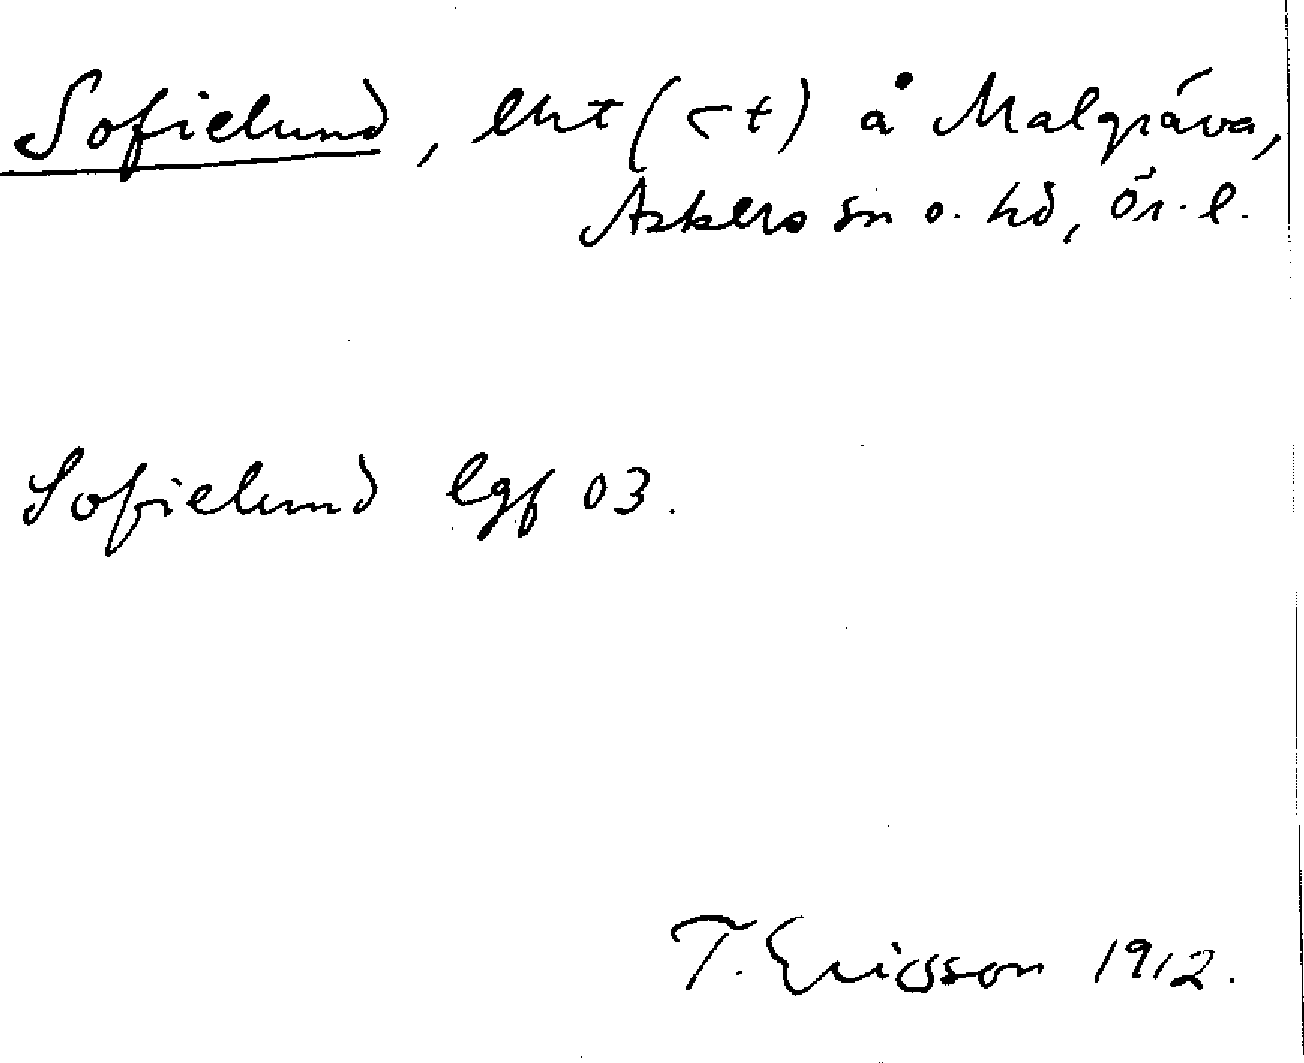 Sofielund, lht (rt) å Malgräva,
Askers sn o. hd, Ör. l.
Sofielund lgf 03.
T. Ericsson 1912.